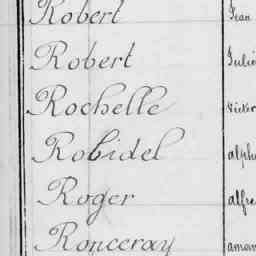 Robert Jean
Robert Julie
Rochelle Victor
Robidel alpho
Roger alfre
Ronceray